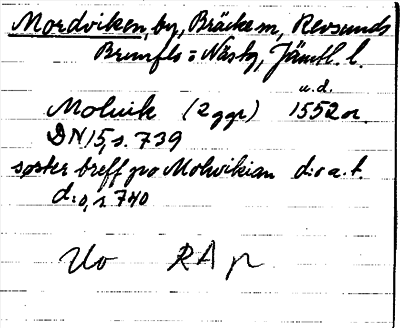 Mordviken, by, Bräcke sn, Revsunds
Brunflo o Näs tg, Jämtl. l.
u.d.
Moluik (2 ggr) 1552 or.
DN 15, s. 739
søster breff po Moluikian d:o a. t.
d:o, s. 740
Uo RAp